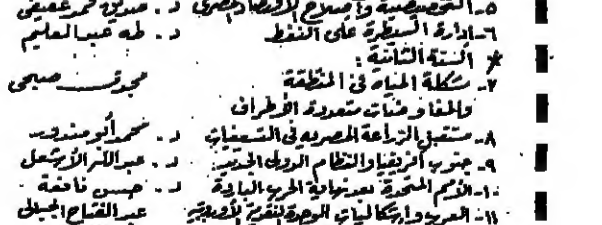 ٥- التخصيصية وإصلاح الاقتصاد المصرى د. صديق محمد عفيفى
٦- إدارة السيطرة على النفط د. طه عبد العليم
* السنة الثانية :
٧- مشكلة المياه فى المنطقة مجدى صبحى
والمفاوضات متعددة الأطراف
٨- مستقبل الزراعة المصرية فى التسعينيات د. محمد أبو مندور
٩- جنوب أفريقيا والنظام الدولى الجديد د. عبد الله الأشعل
١٠- الأمم المتحدة بعد نهاية الحرب الباردة د. حسن نافعة
١١- العرب وإشكاليات الوحدة النقدية الأوروبية عبد الفتاح الجبالى